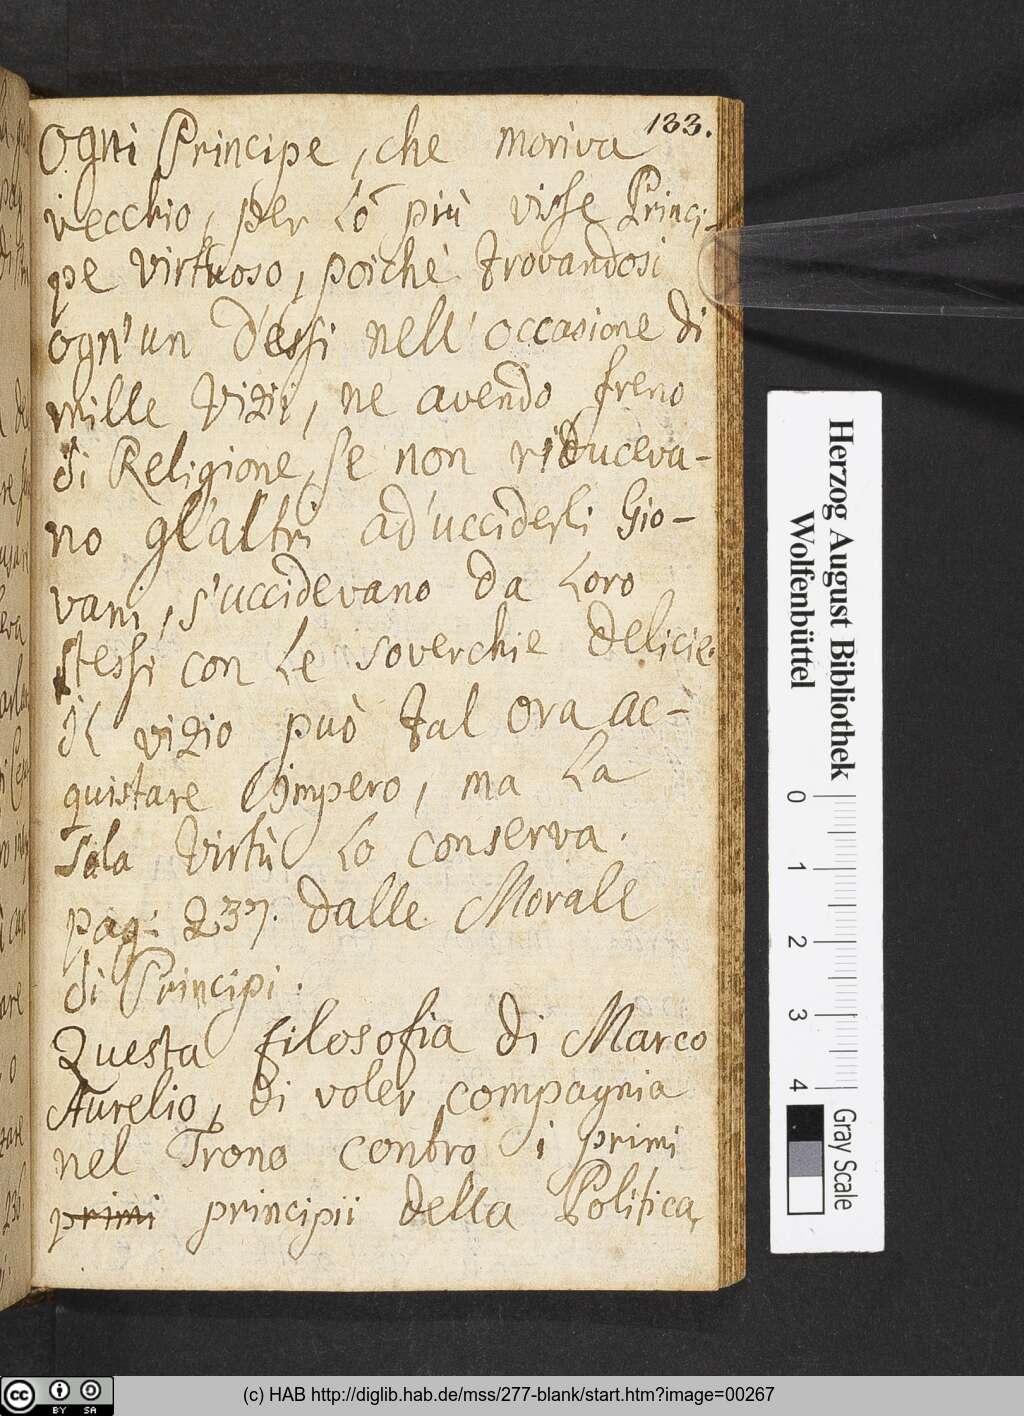 133.
Ogni Principe, che moriva
vecchio, per lo più visse Princi-
pe virtuoso, poiché trovandosi
ogn'un d'essi nell'occasione di
mille vizii, ne avendo freno
di Religione, se non riduceva-
no gl'altri ad'ucciderli Gio-
vani, s'uccidevano da loro
stessi con le soverchie delicie.
il vizio può tal ora ac-
quistare l'impero, ma la
sola virtù lo conserva.
pag: 237. dalle Morale
di Principi.
Questa filosofia di Marco
Aurelio, di voler compagnia
nel Trono contro i primi
primi principii della Politica,
Herzog August Bibliothek
Wolfenbüttel
0 1 2 3 4
Gray Scale
cc BY SA
(c) HAB http://diglib.hab.de/mss/277-blank/start.htm?image=00267